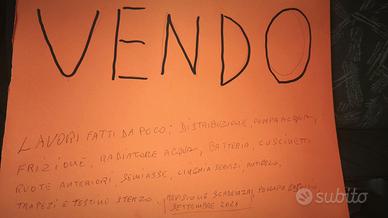 VENDO
LAVORI FATTI DA POCO: DISTRIBUZIONE, POMPA ACQUA,
FRIZIONE, RADIATORE ACQUA, BATTERIA, CUSCINETTI
RUOTE ANTERIORI, SEMIASSE, CINGHIA SERVIZI,
TRAPEZI E TESTINE STERZO. REVISIONE SCADENZA POMPA
SETTEMBRE
subito